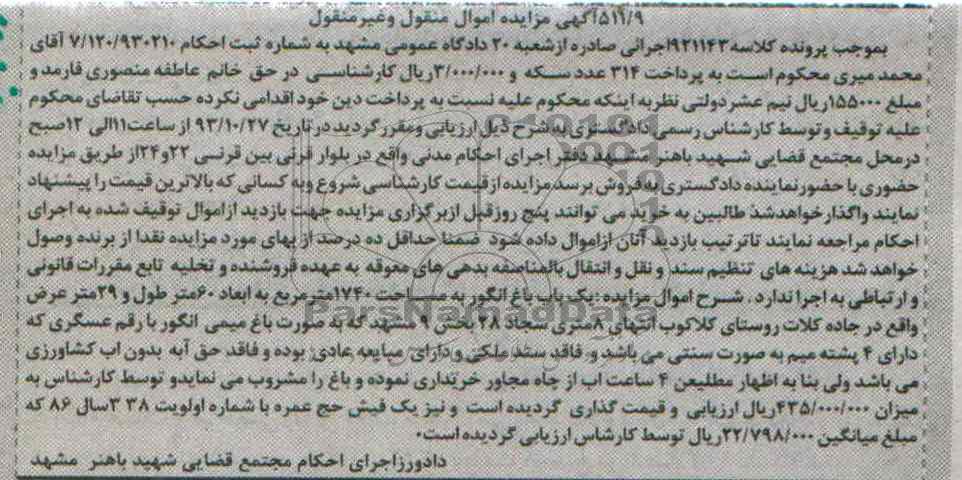 ۵۱۱/۹آگهی مزایده اموال منقول وغیرمنقول
بموجب پرونده کلاسه ۹۲۱۱۴۳اجرائی صادره ازشعبه ۲۰ دادگاه عمومی مشهد به شماره ثبت احکام ۷/۱۲۰/۹۳۰۲۱۰ آقای
محمد میری محکوم است به پرداخت ۳۱۴ عدد سکه و ۳/۰۰۰/۰۰۰ریال کارشناسی در حق خانم عاطفه منصوری فارمد و
مبلغ ۱۵۵۰۰۰ریال نیم عشردولتی نظربه اینکه محکوم علیه نسبت به پرداخت دین خوداقدامی نکرده حسب تقاضای محکوم
علیه توقیف وتوسط کارشناس رسمی دادگستری به شرح ذیل ارزیابی ومقررگردید درتاریخ ۹۳/۱۰/۲۷ از ساعت۱۱الی ۱۲صبح
درمحل مجتمع قضایی شهید باهنر مشهد دفتر اجرای احکام مدنی واقع در بلوار قرنی بین قرنی ۲۲و۲۴از طریق مزایده
حضوری با حضورنماینده دادگستری به فروش برسد مزایده ازقیمت کارشناسی شروع وبه کسانی که بالاترین قیمت را پیشنهاد
نمایند واگذارخواهدشد طالبین به خرید می توانند پنج روزقبل ازبرگزاری مزایده جهت بازدید ازاموال توقیف شده به اجرای
احکام مراجعه نمایند تاترتیب بازدید آنان ازاموال داده شود ضمنا حداقل ده درصد از بهای مورد مزایده نقدا از برنده وصول
خواهد شد هزینه های تنظیم سند و نقل و انتقال بالمناصفه بدهی های معوقه به عهده فروشنده و تخلیه تابع مقررات قانونی
و ارتباطی به اجرا ندارد . شرح اموال مزایده :یک باب باغ انگور به مساحت ۱۷۴۰مترمربع به ابعاد ۶۰متر طول و ۲۹متر عرض
واقع در جاده کلات روستای کلاکوب انتهای ۸متری سجاد ۲۸ بخش ۹ مشهد که به صورت باغ میمی انگور با رقم عسگری که
دارای ۴ پشته میم به صورت سنتی می باشد و فاقد سند ملکی و دارای مبایعه عادی بوده و فاقد حق آبه بدون اب کشاورزی
می باشد ولی بنا به اظهار مطلیعن ۴ ساعت اب از چاه مجاور خریداری نموده و باغ را مشروب می نمایدو توسط کارشناس به
میزان ۴۳۵/۰۰۰/۰۰۰ریال ارزیابی و قیمت گذاری گردیده است و نیز یک فیش حج عمره با شماره اولویت ۳۸ ۳سال ۸۶ که
مبلغ میانگین ۲۲/۷۹۸/۰۰۰ریال توسط کارشاس ارزیابی گردیده است.
دادورزاجرای احکام مجتمع قضایی شهید باهنر مشهد
ParsNamadData